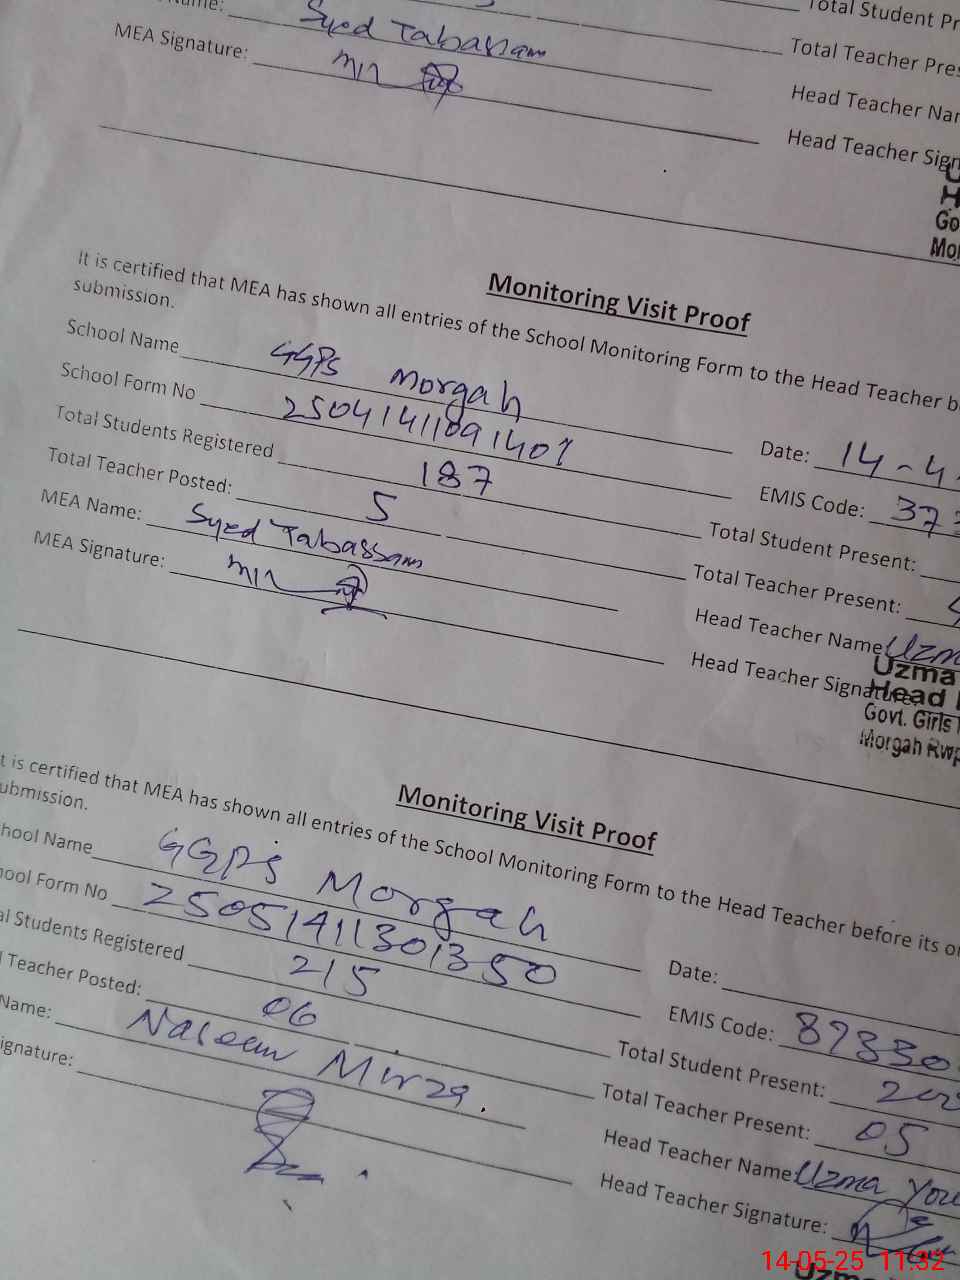 Name: Syed Tabassam
Total Student Pr
MEA Signature:
Total Teacher Pres
Head Teacher Nar
Head Teacher Sign
Go
Mor
Monitoring Visit Proof
It is certified that MEA has shown all entries of the School Monitoring Form to the Head Teacher b
submission.
School Name GGPS Morgah
Date: 14-4-
School Form No
EMIS Code: 373
Total Students Registered 187
Total Student Present:
Total Teacher Posted: 5
Total Teacher Present:
MEA Name: Syed Tabassam
Head Teacher Name Uzm
MEA Signature:
Head Teacher Signature:
Uzma
Head
Govt. Girls
Morgah Rwp
Monitoring Visit Proof
t is certified that MEA has shown all entries of the School Monitoring Form to the Head Teacher before its o
ubmission.
hool Name GGPS Morgah
Date:
hool Form No 25051411301350
EMIS Code:
al Students Registered 215
Total Student Present:
l Teacher Posted: 06
Total Teacher Present: 05
Name: Naseem Mirza
Head Teacher Name Uzma You
ignature:
Head Teacher Signature:
Uzma
14-05-25 11:32